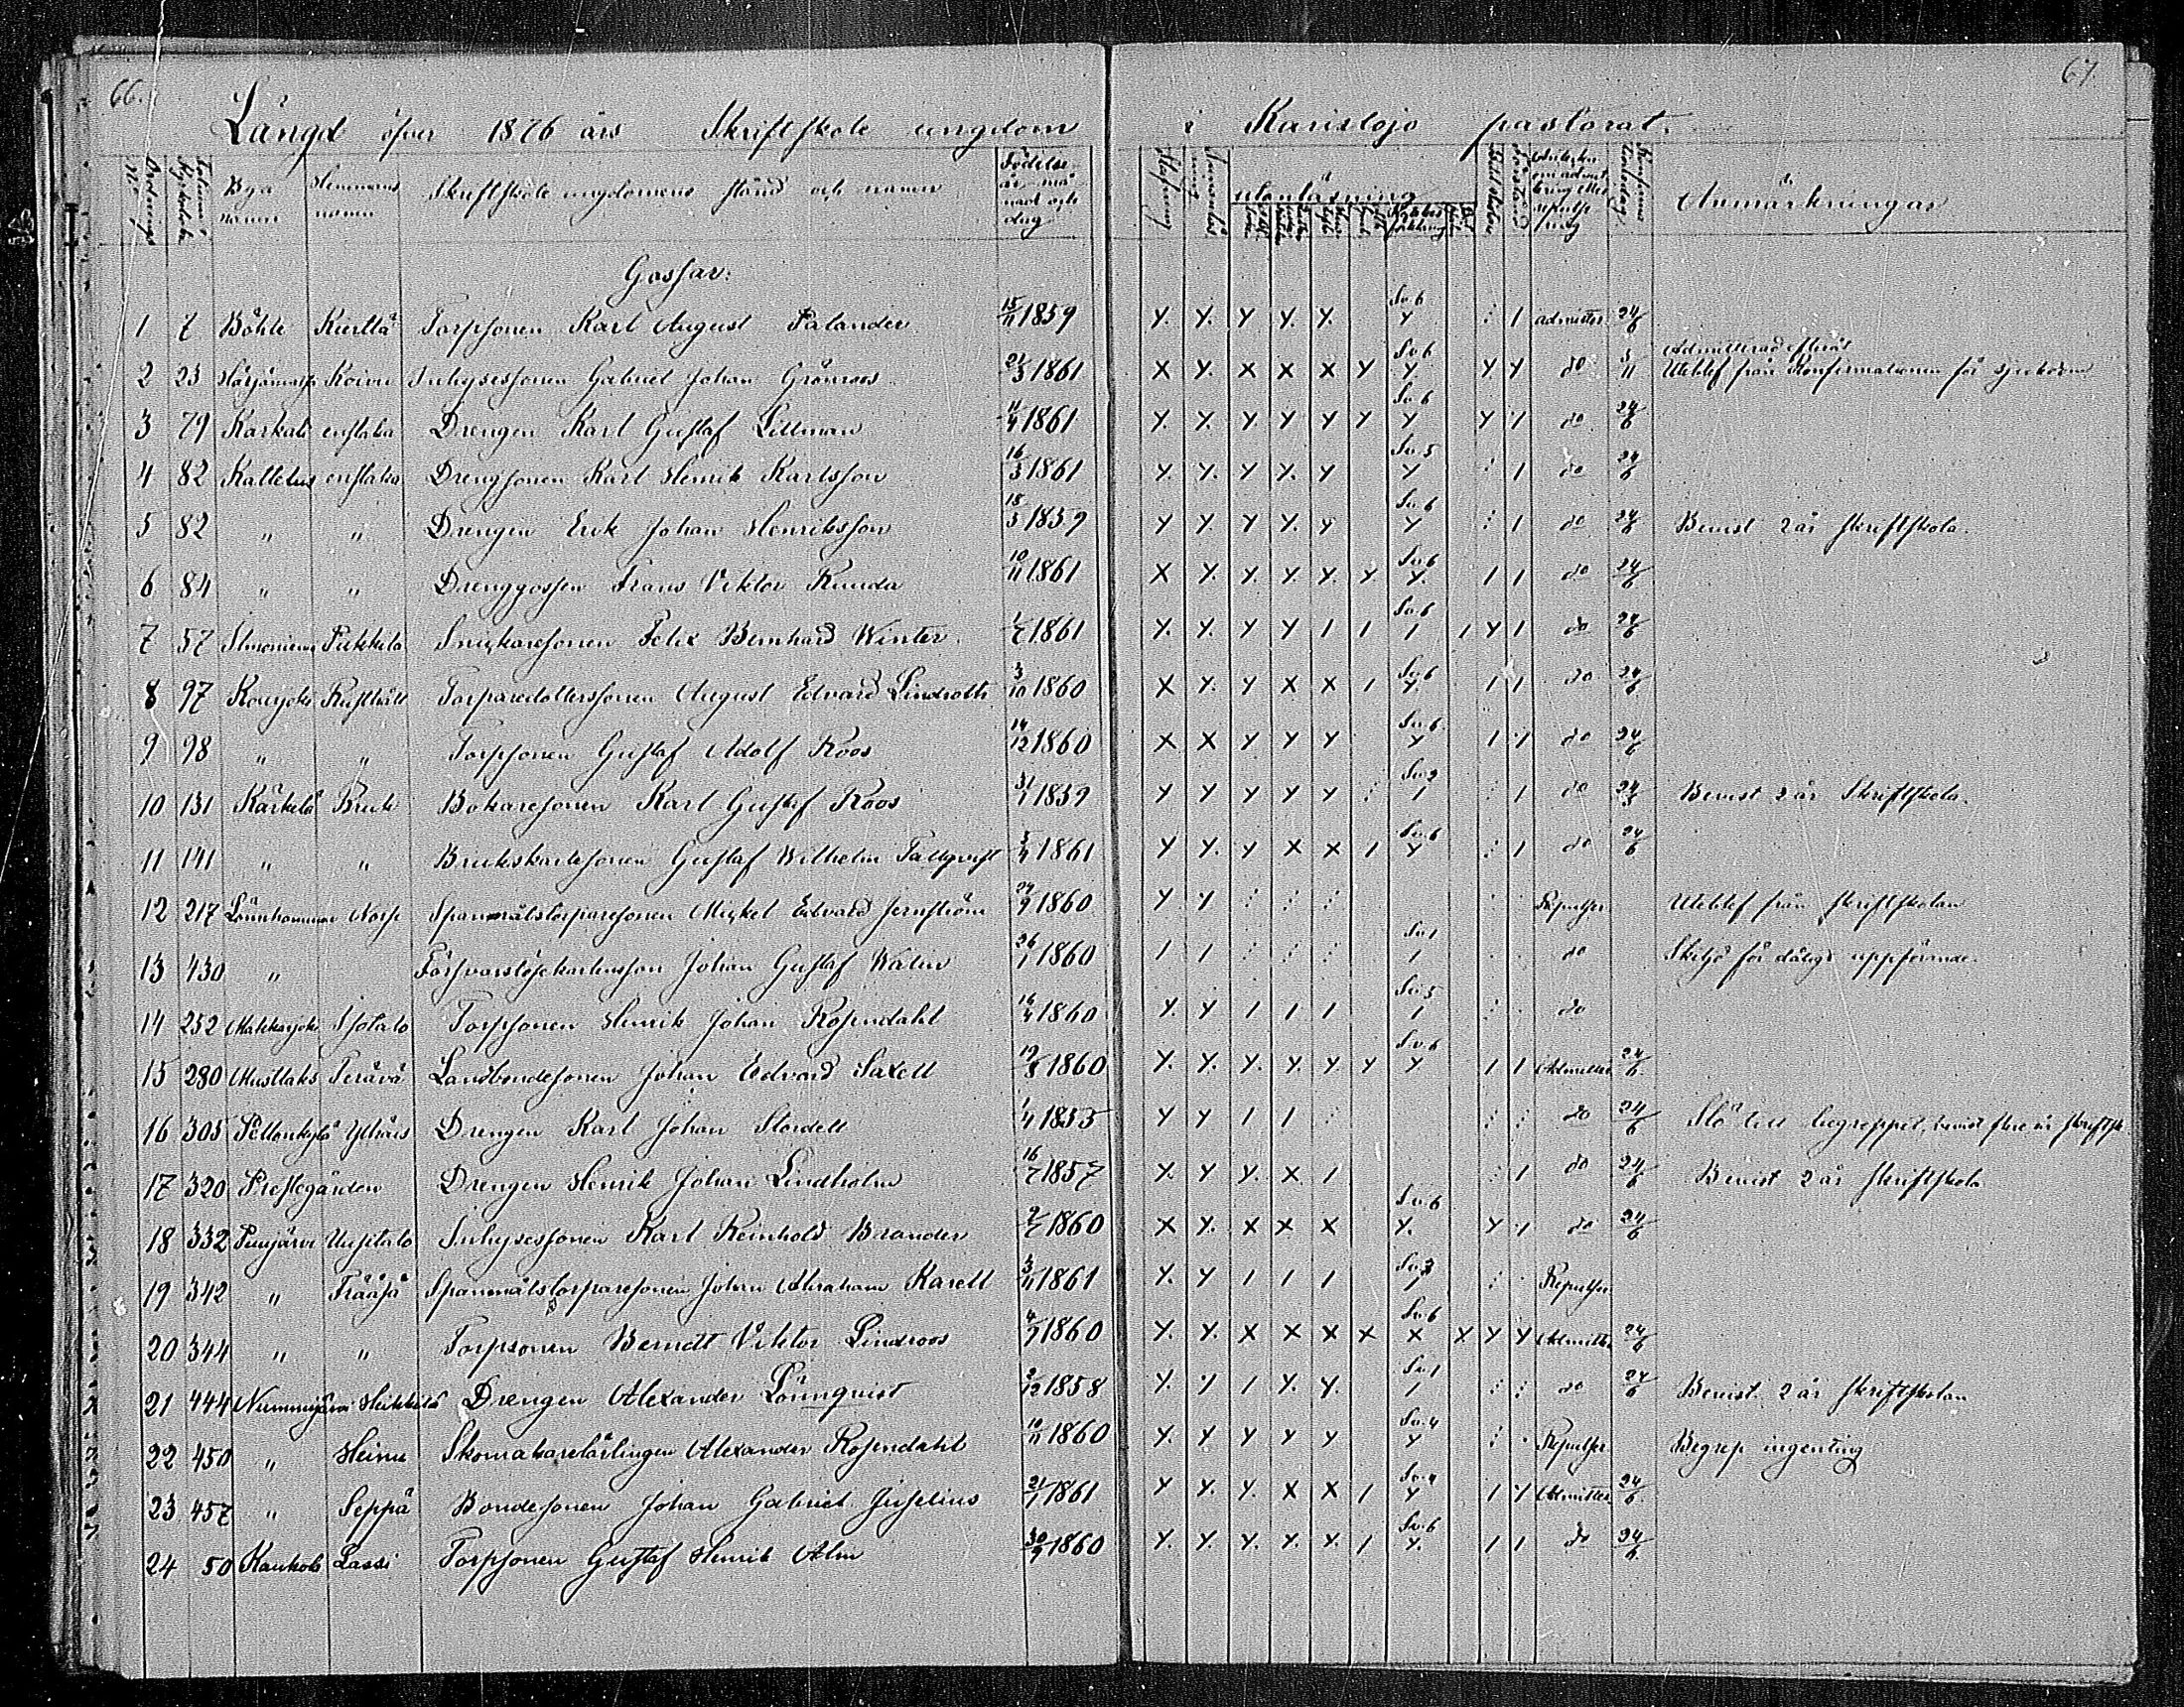 66.
67.
Längd öfver 1876 års Skriftskole ungdom i Karislojo pastorat.
Ordnings No
Folium i Kyrkobok
Bya namn
Hemmans namn
Skriftskole ungdomens stånd och namn
Födelse år, månad och dag
Stafning
Innanläsning
utanläsning
Anmärkningar
Gossar:
1 7 Böhle Kierllä Torpsonen Karl August Palander 15/11 1859 Y. Y. Y Y. Y. Sv. 6 Y : 1 admitter. 24/6
2 23 Koivu Inhysessonen Gabriel Johan Grönroos 21/3 1861 X Y. X X X Y Sv. 6 Y. Y Y do 5/11 Admitterad efteråt Uteblef från Konfirmationen för sjukdom
3 79 Karkali enstaka Drengen Karl Gustaf Littman 11/4 1861 Y. Y. Y. Y. Y Y Sv. 6 Y Y 1 do 24/6
4 82 Kalletus enstaka Drengsonen Karl Henrik Karlsson 16/3 1861 Y. Y. Y. Y. Y Sv. 5 Y : 1 do 24/6
5 82 " " Drengen Erik Johan Henriksson 18/3 1859 Y Y Y Y. Y Sv. 6 Y : 1 do 24/6 Bevist. 2 år skriftskola.
6 84 " " Drenggossen Frans Viktor Runda 10/11 1861 X Y. Y. Y. Y. Y. Sv. 6 Y. 1 1 do 24/6
7 57 Pukkila Snickaresonen Felix Bernhard Winter 1/7 1861 Y. Y. Y Y 1 1 Sv. 6 1 1 Y 1 do 24/6
8 97 Kouvjoki Rusthåll Torparedottersonen August Edvard Lindroth 3/10 1860 X Y. Y X X 1 Sv. 6 Y. 1 1 do 24/6
9 98 " " Torpsonen Gustaf Adolf Roos 14/12 1860 X X Y Y Y Sv. 6 Y 1 1 do 24/6
10 131 Kärkelä Bruk Bokaresonen Karl Gustaf Roos 31/1 1859 Y Y Y Y Y : Sv. 2 1 : 1 do Bevist 2 år Skriftskola.
11 141 " " Brukskarlesonen Gustaf Wilhelm Tallqvist 5/4 1861 Y Y. Y X X 1 Sv. 6 Y : 1 do 24/6
12 217 Lönnhammar Norp Spanmålstorparesonen Mickel Edvard Jernström 29/9 1860 Y Y : : : : : Repulser Uteblef från skriftskolan
13 430 " Johan Gustaf Walin 26/1 1860 1 1 : : : Sv. 1 1 : . do Skiljd för dåligt uppförande.
14 252 Isotalo Torpsonen Henrik Johan Rosendahl 16/4 1860 Y. Y 1 1 1 Sv. 5 1 : . do
15 280 Mustlaks Terävä Landbondesonen Johan Edvard Saxell 19/8 1860 Y. Y. Y. Y. Y Y Sv. 6 Y 1 1 Admitter. 24/6
16 305 Pellonkylä Drengen Karl Johan Stordell 1/4 1855 Y Y 1 1 : : : do 24/6 Slö till begreppet, bevist flere år skriftsk
17 320 Prestegården Drengen Henrik Johan Lindholm 16/7 1857 X Y Y. X 1 : 1 do 24/6 Bevist 2 år skriftskola
18 332 Puujärvi Uusitalo Inhysessonen Karl Reinhold Brander 2/7 1860 X Y. X X X Sv. 6 Y. Y 1 do 24/6
19 342 " Frääsä Spanmålstorparesonen Johan Abraham Karell 3/11 1861 Y. Y 1 1 1 Sv. 3 1 : . Repulser
20 344 " " Torpsonen Berndt Viktor Lindroos 4/7 1860 Y. Y. X X X X Sv. 6 X X Y Y Admitter. 24/6
21 444 Nummijärvi Heikkilä Drengen Alexander Lönnquist 2/12 1858 Y. Y 1 Y. Y. Sv. 1 1 : : do 24/6 Bevist. 2 år skriftskolan
22 450 " Heimo Skomakarelärlingen Alexander Rosendahl 10/11 1860 Y. Y Y Y Y Sv. 4 Y : . Repulser Begrep ingenting
23 457 " Seppä Bondesonen Johan Gabriel Juselius 21/1 1861 Y Y. Y. X X 1 Sv. 4 Y 1 Y Admitter. 24/6
24 50 Kaukola Lassi Torpsonen Gustaf Henrik Alm 30/9 1860 Y. Y. Y. Y. Y. 1 Sv. 6 Y. 1 1 do 24/6